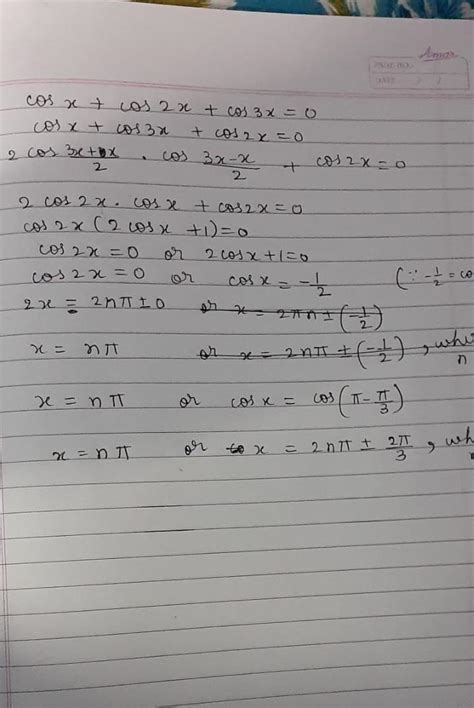 Amar
cos x + cos 2x + cos 3x = 0
cos x + cos 3x + cos 2x = 0
2 cos (3x+x)/2 . cos (3x-x)/2 + cos 2x = 0
2 cos 2x . cos x + cos 2x = 0
cos 2x (2 cos x + 1) = 0
cos 2x = 0 or 2 cos x + 1 = 0
cos 2x = 0 or cos x = -1/2 (∵ -1/2 = co
2x = 2nπ ± 0 or x = 2πn ± (-1/2)
x = nπ or x = 2nπ ± (-1/2), whe
n
x = nπ or cos x = cos (π - π/3)
x = nπ or x = 2nπ ± 2π/3, wh